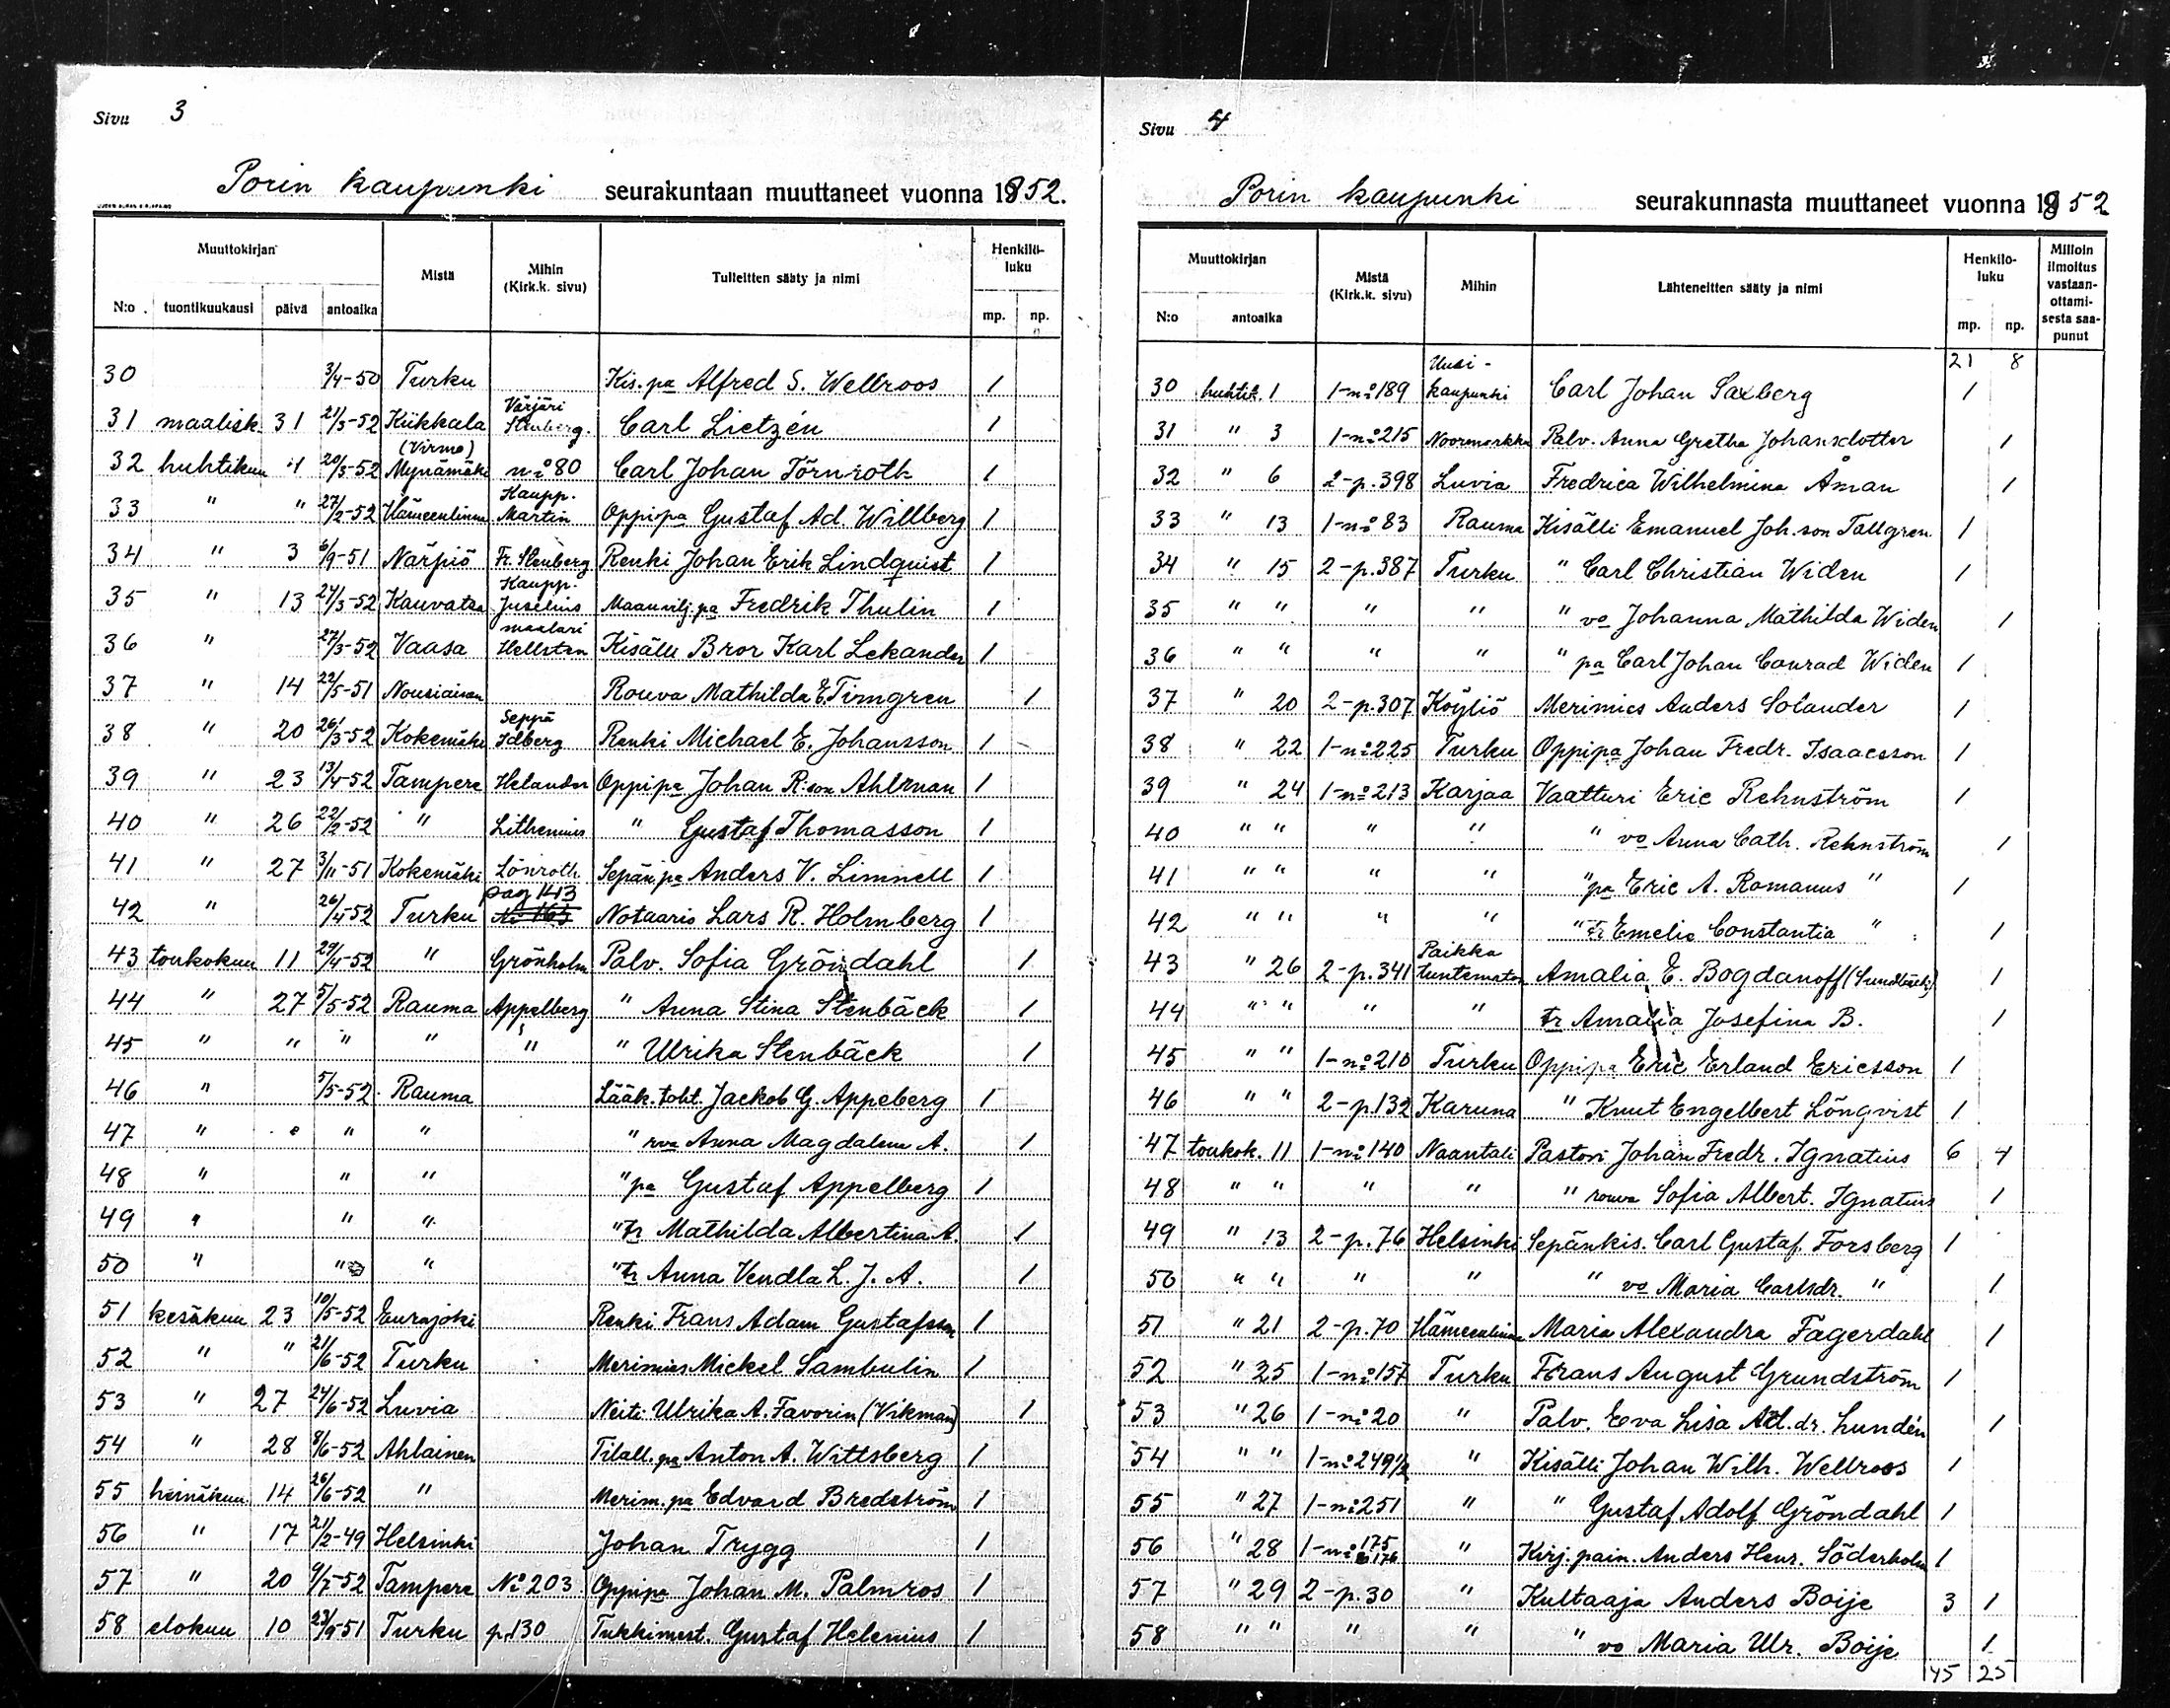 Sivu 3
Porin kaupunki seurakuntaan muuttaneet vuonna 1852.
Muuttokirjan
Mistä
Mihin (Kirk.k. sivu)
Tulleitten sääty ja nimi
Henkilö-luku
N:o tuontikuukausi päivä antoaika mp. np.
30 3/4-50 Turku Kis. pa Alfred S. Wellroos 1
31 maalisk. 31 21/3-52 Kiikkala Värjäri Stenberg. Carl Lietzén 1
32 huhtikuu 1 20/3-52 (Virmo) Mynämäki n:o 80 Carl Johan Törnroth 1
33 " " 27/2-52 Hämeenlinna Kaupp. Martin Oppipa Gustaf Ad. Willberg 1
34 " 3 6/9-51 Närpiö Fr. Stenberg Renki Johan Erik Lindquist 1
35 " 13 27/3-52 Kauvatsa Kaupp. Juselius Maanvilj. pa Fredrik Thulin 1
36 " 27/3-52 Vaasa maalari Hellsten Kisälli Bror Karl Lekander 1
37 " 14 22/5-51 Nousiainen Rouva Mathilda E. Timgren 1
38 " 20 26/3-52 Kokemäki Seppä Idberg Renki Michael E. Johansson 1
39 " 23 13/4-52 Tampere Helander Oppipa Johan R:son Ahlman 1
40 " 26 22/2-52 " Lithenius " Gustaf Thomasson 1
41 " 27 3/11-51 Kokemäki Lönroth Sepän pa Anders V. Limnell 1
42 " 26/4-52 Turku pag 143 N:o 163 Notaario Lars R. Holmberg 1
43 toukokuu 11 29/4-52 " Grönholm Palv. Sofia Gröndahl 1
44 " 27 5/5-52 Rauma Appelberg " Anna Stina Stenbäck 1
45 " " " " " " Ulrika Stenbäck 1
46 " 5/5-52 Rauma Lääk. toht. Jackob G. Appeberg 1
47 " " " " rva Anna Magdalena A. 1
48 " " " " pa Gustaf Appelberg 1
49 " " " " tr Mathilda Albertina A. 1
50 " " " " tr Anna Vendla L. J. A. 1
51 kesäkuu 23 10/5-52 Eurajoki Renki Frans Adam Gustafsson 1
52 " " 21/6-52 Turku Merimies Mickel Sambulin 1
53 " 27 24/6-52 Luvia Neiti Ulrika A. Favorin (Vikman) 1
54 " 28 8/6-52 Ahlainen Tilall. pa Anton A. Wittsberg 1
55 heinäkuu 14 26/6-52 " Merim. pa Edvard Bredström 1
56 " 17 21/2-49 Helsinki Johan Trygg 1
57 " 20 9/7-52 Tampere N:o 203 Oppipa Johan M. Palmros 1
58 elokuu 10 23/9-51 Turku p. 130 Tukkimest. Gustaf Helenius 1
Sivu 4
Porin kaupunki seurakunnasta muuttaneet vuonna 1852
Muuttokirjan
Mistä (Kirk.k. sivu)
Mihin
Lähteneitten sääty ja nimi
Henkilö-luku
Milloin ilmoitus vastaan-ottami-sesta saa-punut
N:o antoaika mp. np.
21 8
30 huhtik. 1 1-n:o 189 Uusi-kaupunki Carl Johan Saxberg 1
31 " 3 1-n:o 215 Noormarkku Palv. Anna Gretha Johansdotter 1
32 " 6 2-p. 398 Luvia Fredrica Wilhelmina Åman 1
33 " 13 1-n:o 83 Rauma Kisälli Emanuel Joh.son Tallgren 1
34 " 15 2-p. 387 Turku " Carl Christian Widen 1
35 " " " " " vo Johanna Mathilda Widen 1
36 " " " " " pa Carl Johan Conrad Widen 1
37 " 20 2-p. 307 Köyliö Merimies Anders Solander 1
38 " 22 1-n:o 225 Turku Oppipa Johan Fredr. Isaacsson 1
39 " 24 1-n:o 213 Karjaa Vaatturi Eric Rehnström 1
40 " " " " " vo Anna Cath. Rehnström 1
41 " " " " " pa Eric A. Romanus " 1
42 " " " " " tr Emelie Constantia " 1
43 " 26 2-p. 341 Paikka tuntematon Amalia E. Bogdanoff (Sundbäck) 1
44 " " " " tr Amalia Josefina B. 1
45 " " 1-n:o 210 Turku Oppipa Eric Erland Ericsson 1
46 " " 2-p. 132 Karuna " Knut Engelbert Lönqvist 1
47 toukok. 11 1-n:o 140 Naantali Pastori Johan Fredr. Ignatius 6 4
48 " " " " " rouva Sofia Albert. Ignatius 1
49 " 13 2-p. 76 Helsinki Sepänkis. Carl Gustaf. Forsberg 1
50 " " " " " vo Maria Carlsdr. " 1
51 " 21 2-p. 70 Hämeenlinna Maria Alexandra Fagerdahl 1
52 " 25 1-n:o 157 Turku Frans August Grundström 1
53 " 26 1-n:o 20 " Palv. Eva Lisa Ad.dr. Lundén 1
54 " " 1-n:o 249 1/2 " Kisälli Johan Wilh. Wellroos 1
55 " 27 1-n:o 251 " " Gustaf Adolf Gröndahl 1
56 " 28 1-n:o 175 176 " Kirj. pain. Anders Henr. Söderholm 1
57 " 29 2-p. 30 " Kultaaja Anders Boije 3 1
58 " " " " " vo Maria Ulr. Boije 1
45 25